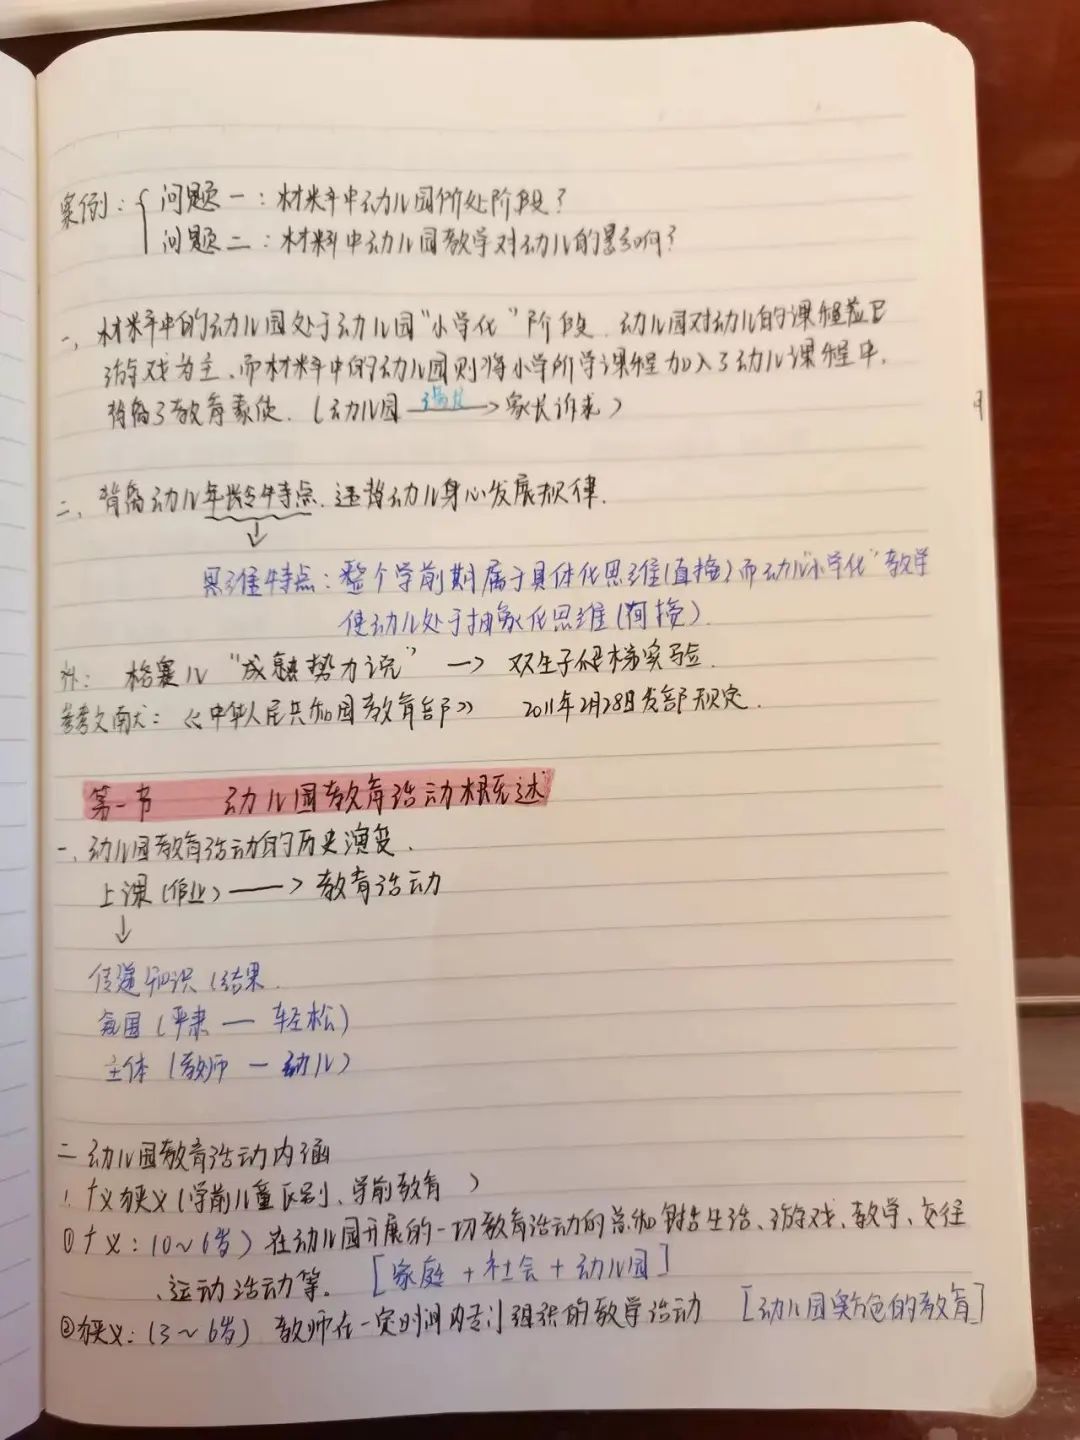 案例：{ 问题一：材料中幼儿园所处阶段？
问题二：材料中幼儿园教学对幼儿的影响？
一、材料中的幼儿园处于幼儿园“小学化”阶段，幼儿园对幼儿的课程应已
游戏为主，而材料中的幼儿园则将小学所学课程加入了幼儿课程中，
背离了教育素使．（幼儿园 → 家长诉求）
二、背离幼儿年龄特点，违背幼儿身心发展规律．
↓
思维特点：整个学前期属于具体化思维（直接）而幼儿“小学化”教学
使幼儿处于抽象化思维（间接）
补：格塞儿“成熟势力说” → 双生子爬梯实验．
参考文献：《中华人民共和国教育部》 2011年2月28日发部规定．
第一节 幼儿园教育活动概述
一、幼儿园教育活动的历史演变．
上课（作业） → 教育活动
↓
传递知识（结果．
氛围（严肃 — 轻松）
主体（教师 — 幼儿）
二 幼儿园教育活动内涵
1. 广义狭义（学前儿童区别、学前教育 ）
①广义：（0～6岁）在幼儿园开展的一切教育活动的总和 包括生活、游戏、教学、交往
、运动活动等． [家庭 + 社会 + 幼儿园]
②狭义：（3～6岁） 教师在一定时间内专门组织的教学活动 [幼儿园角色的教育]